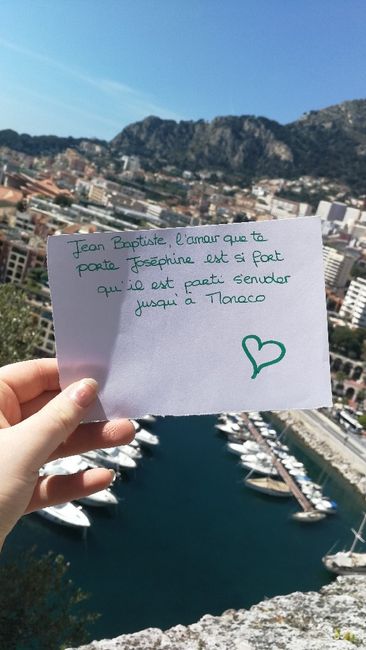 Jean Baptiste, l'amour que te
porte Joséphine est si fort
qu'il est parti s'envoler
jusqu'à Monaco